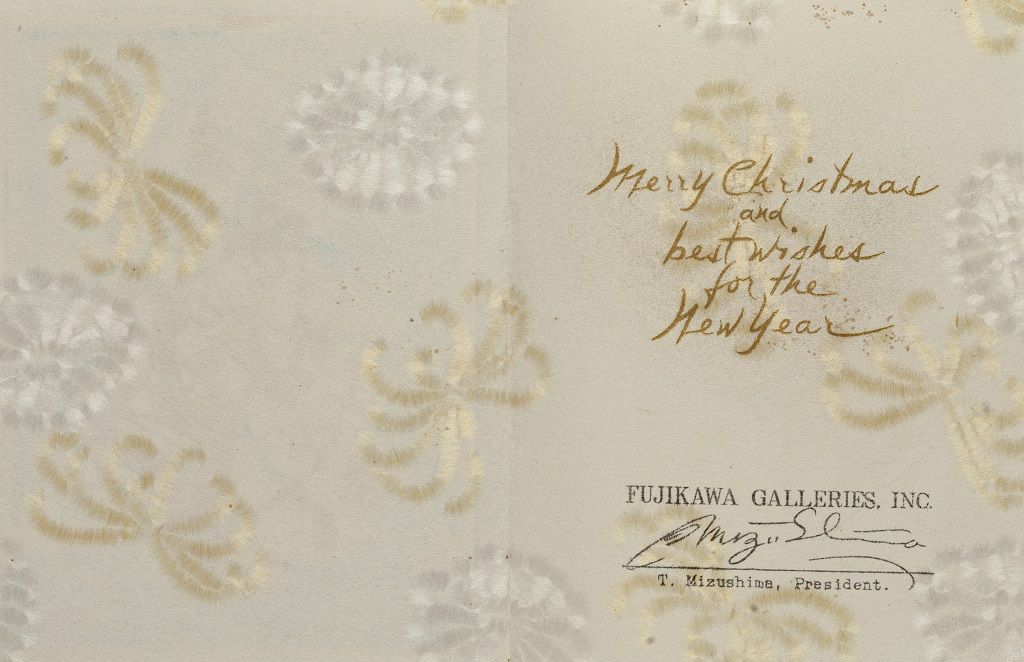 Merry Christmas
and
best wishes
for the
New Year
FUJIKAWA GALLERIES, INC.
T. Mizushima, President.